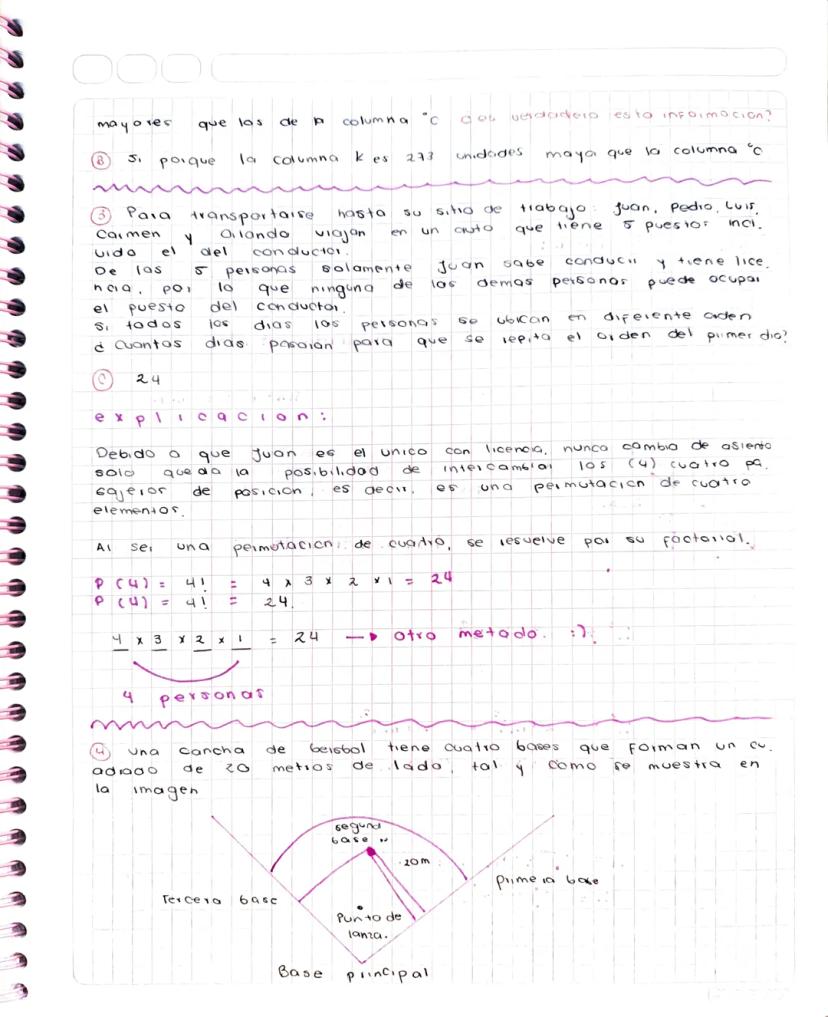 mayores que los de la columna °C ¿es verdadera esta informacion?
(B) Si porque la columna k es 273 unidades mayor que la columna °C
(3) Para transportarse hasta su sitio de trabajo: Juan, Pedro, Luis,
Carmen y Orlando viajan en un auto que tiene 5 puestos incl.
uido el del conductor.
De las 5 personas solamente Juan sabe conducir y tiene lice.
ncia, por lo que ninguna de las demas personas puede ocupar
el puesto del conductor.
Si todos los dias las personas se ubican en diferente orden
¿Cuantos dias pasaran para que se repita el orden del primer dia?
(C) 24
explicacion:
Debido a que Juan es el unico con licencia, nunca cambia de asiento
solo queda la posibilidad de intercambiar los (4) cuatro pa.
sajeros de posicion, es decir, es una permutacion de cuatro
elementos.
Al ser una permutacion de cuatro, se resuelve por su factorial.
P (4) = 4! = 4 x 3 x 2 x 1 = 24
P (4) = 4! = 24.
4 x 3 x 2 x 1 = 24 → otro metodo. :)
4 personas
(4) una cancha de beisbol tiene cuatro bases que forman un cu.
adrado de 20 metros de lado, tal y como se muestra en
la imagen
segund
base
20m
Primera base
Tercera base
Punto de
lanza.
Base principal